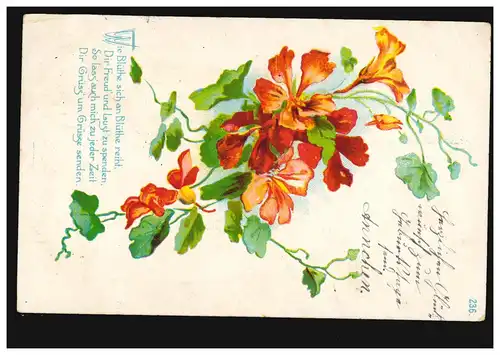 Wie Blüthe sich an Blüthe reiht,
Dir Freud und Lust zu spenden,
So lass auch mich zu jeder Zeit
Dir Gruss um Grüsse senden.
Herzlichen Glück
wunsch zum
Geburtstage
Annchen.
236.